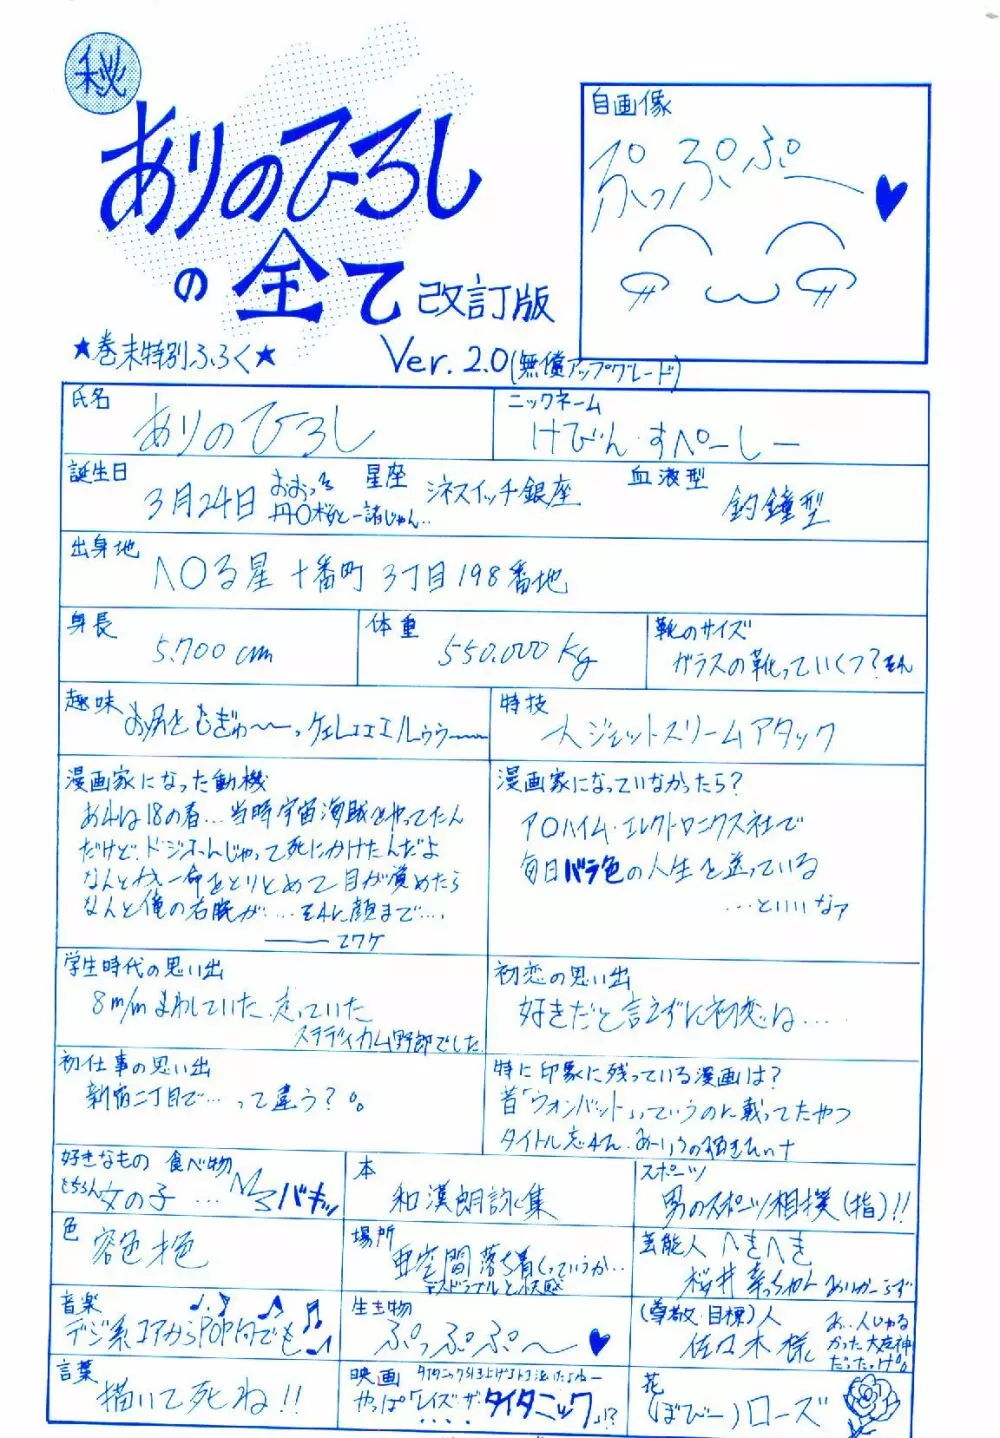 秘
ありのひろし
の全て 改訂版
★巻末特別ふろく★
Ver. 2.0(無償アップグレード)
自画像
ぷっぷぷー
氏名
ありのひろし
ニックネーム
けびん・すぺーしー
誕生日
3月24日
丹〇桜と一諸じゃん…
星座
シネスイッチ銀座
血液型
釣鐘型
出身地
ハ〇る星 十番町 3丁目198番地
身長
5.700cm
体重
550.000kg
靴のサイズ
ガラスの靴っていくつ?
趣味
お尻をむぎゅ〜〜っ
特技
人ジェットストリームアタック
漫画家になった動機
あれは18の春…当時宇宙海賊をやってたん
だけど、ドジふんじゃって死にかけたんだよ
なんとか一命をとりとめて目が覚めたら
なんと俺の右腕が……それに顔まで….
漫画家になっていなかったら?
ア〇ハイム・エレクトロニクス社で
毎日バラ色の人生を送っている
…といいなァ
学生時代の思い出
8m/mまわしていた、走っていた
ステディカム野郎でした
初恋の思い出
好きだと言えずに初恋は……
初仕事の思い出
新宿二丁目で…って違う?
特に印象に残っている漫画は?
昔「ウォンバット」っていうのに載ってたやつ
タイトル忘れた、
好きなもの 食べ物
もちろん女の子…
バキッ
本
和漢朗詠集
スポーツ
男のスポーツ相撲(指)!!
色
容色才色
場所
亜空間落ち着くっていうか…
芸能人
へきへき
桜井幸っちゃん
音楽
デジ系コアからPOP何でも
生き物
ぷっぷぷ〜
(尊敬・目標)人
佐々木様
言葉
描いて死ね!!
映画
やっぱ「レイズ・ザ・タイタニック」!?
花
(ぼびー)ローズ